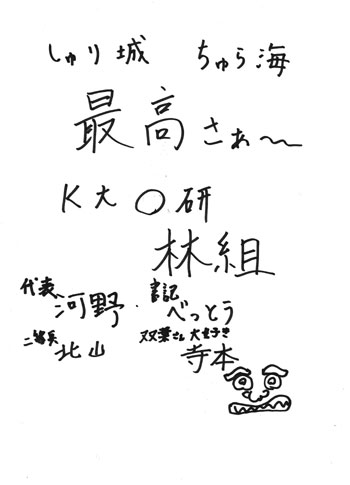 しゅり城 ちゅら海
最高さぁ〜
K大〇研
林組
代表 書記
河野・べっとう
二等兵 双葉さん大好き
北山 寺本